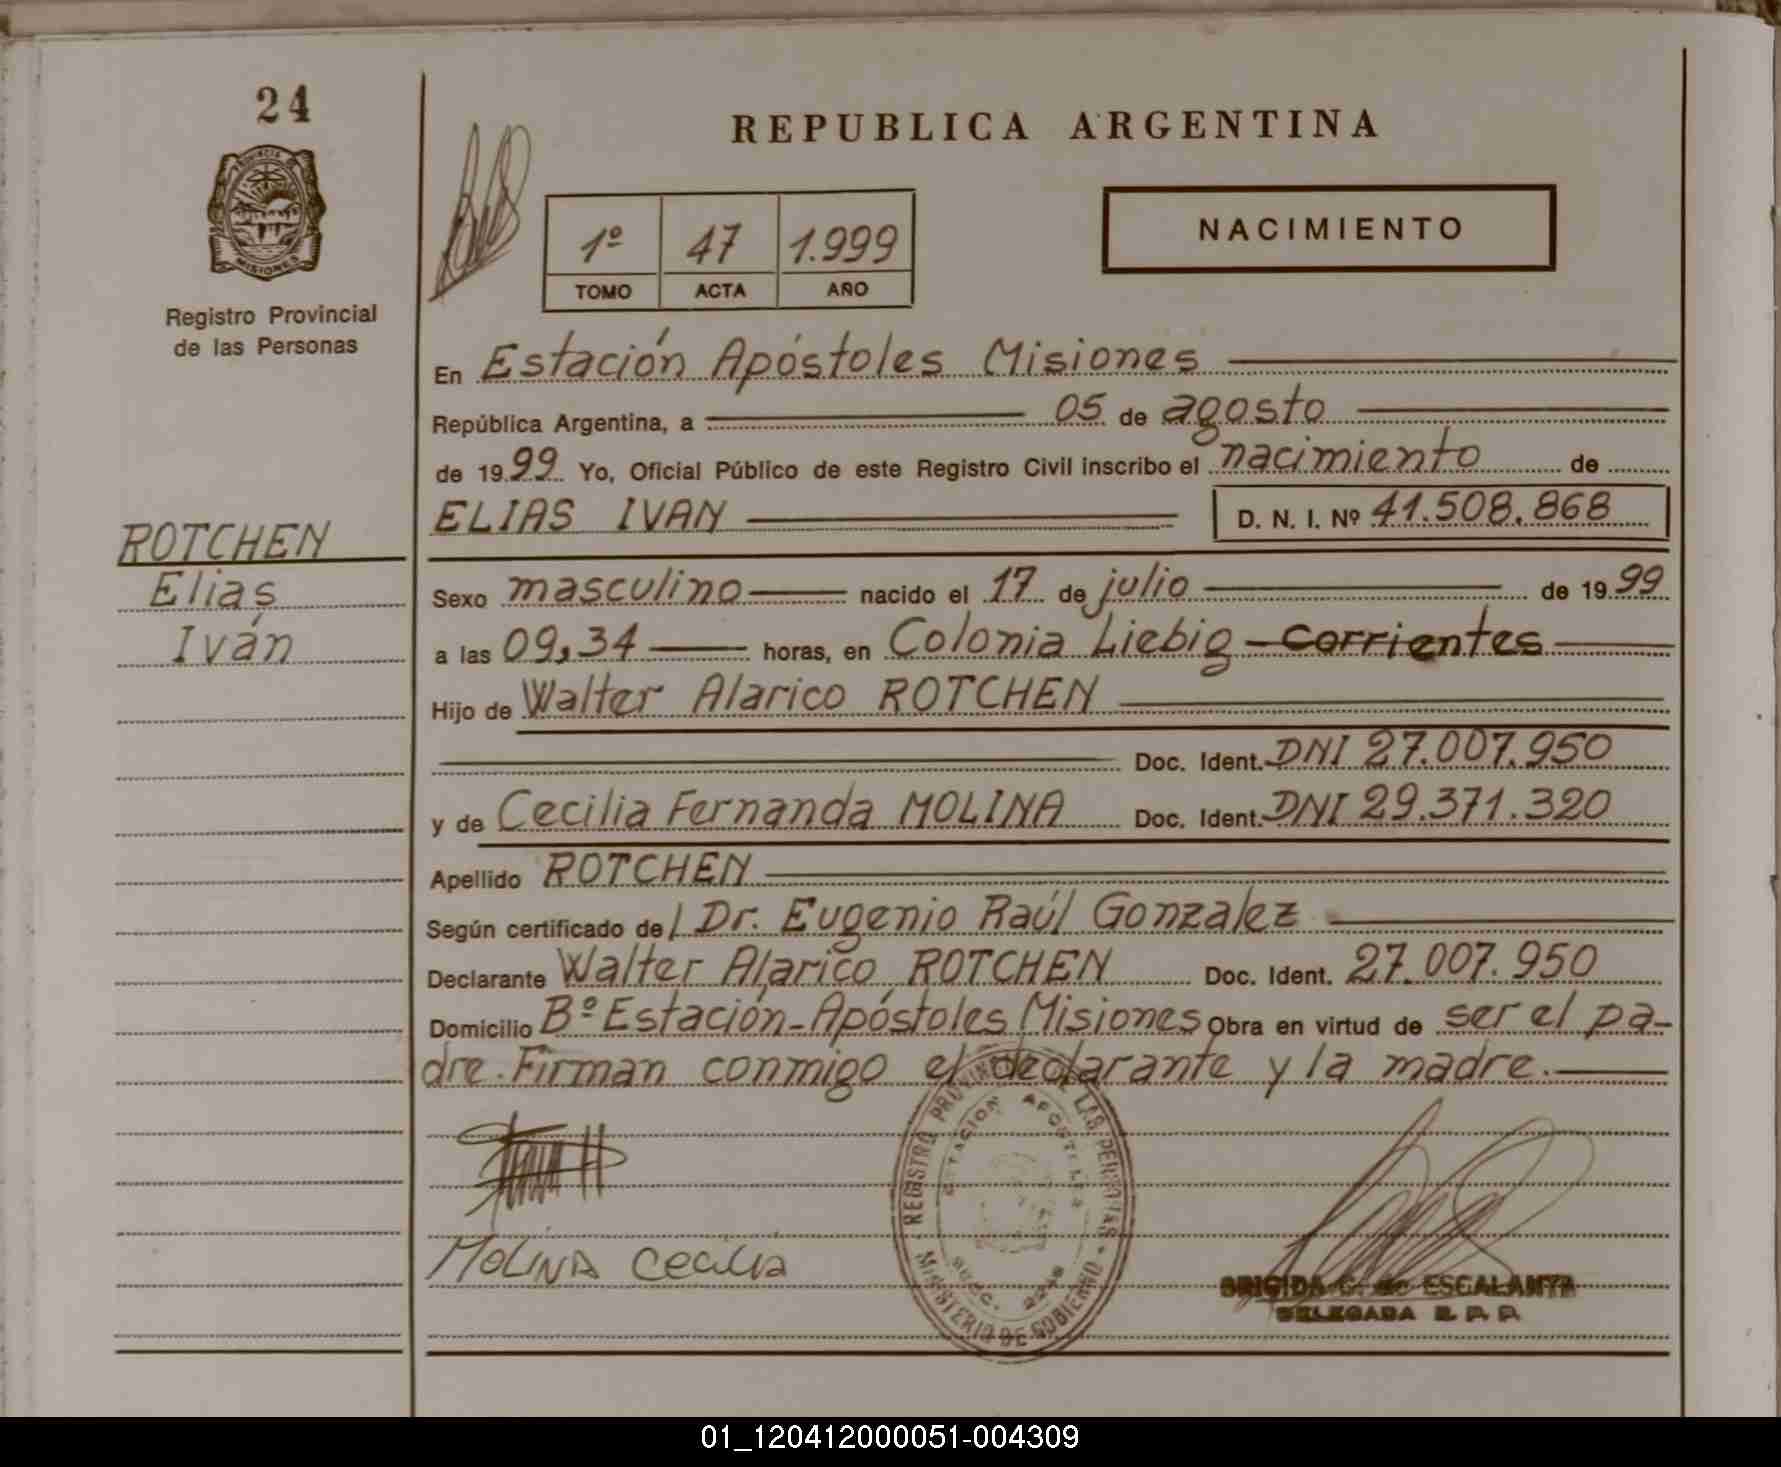 24
PROVINCIA DE
MISIONES
Registro Provincial
de las Personas
ROTCHEN
Elias
Iván
REPUBLICA ARGENTINA
1º 47 1.999
TOMO ACTA AÑO
NACIMIENTO
En Estación Apóstoles Misiones
República Argentina, a 05 de agosto
de 19 99 Yo, Oficial Público de este Registro Civil inscribo el nacimiento de
ELIAS IVAN D. N. I. Nº 41.508.868
Sexo masculino nacido el 17 de julio de 19 99
a las 09,34 horas, en Colonia Liebig - corrientes
Hijo de Walter Alarico ROTCHEN
Doc. Ident. DNI 27.007.950
y de Cecilia Fernanda MOLINA Doc. Ident. DNI 29.371.320
Apellido ROTCHEN
Según certificado de Dr. Eugenio Raúl Gonzalez
Declarante Walter Alarico ROTCHEN Doc. Ident. 27.007.950
Domicilio Bº Estación-Apóstoles Misiones Obra en virtud de ser el pa-
dre. Firman conmigo el declarante y la madre.
REGISTRO PROVINCIAL DE LAS PERSONAS
ESTACION APOSTOLES
MINISTERIO DE GOBIERNO
MOLINA Cecilia
BRIGIDA G. de ESCALANTE
DELEGADA R. P. P.
01_120412000051-004309